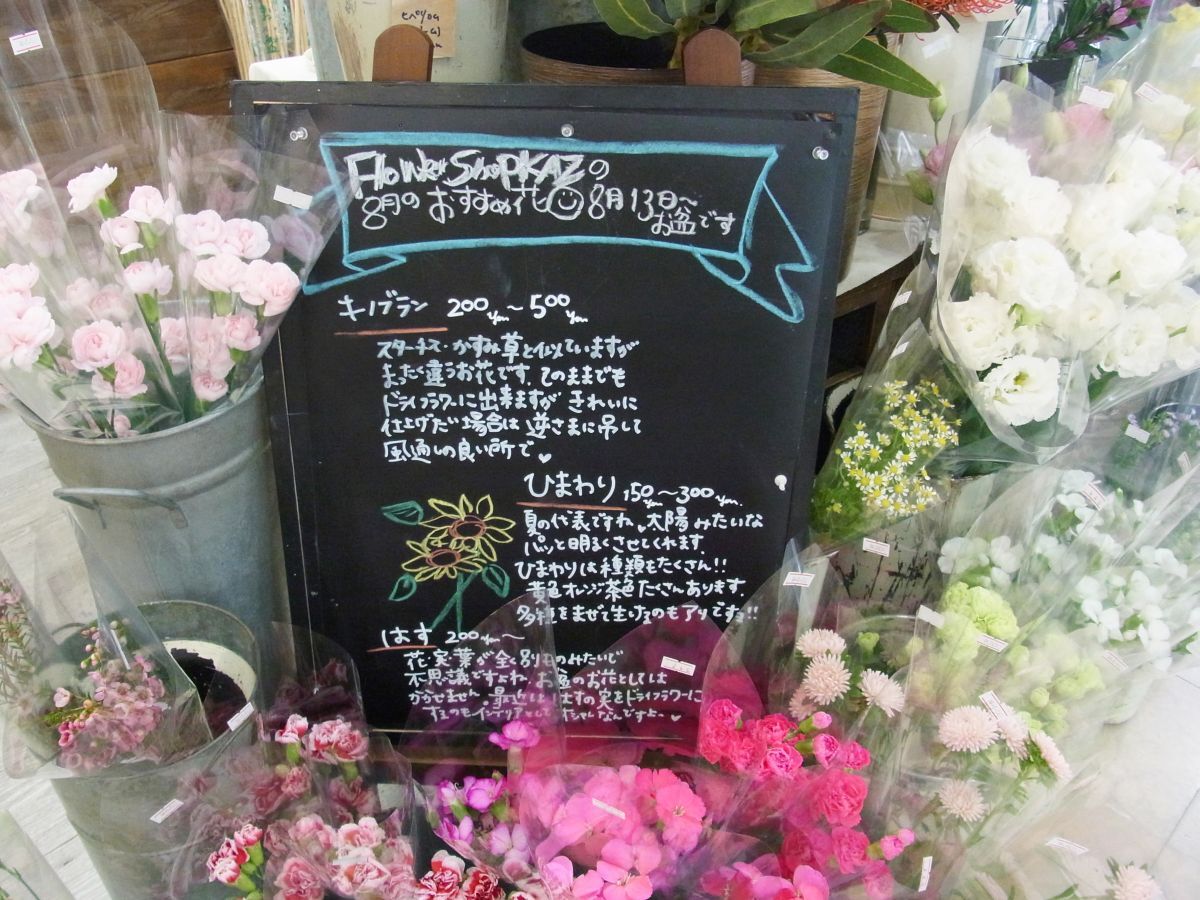 Flower Shop KAZの
8月のおすすめ花 8月13日〜
お盆です
キノブラン 200yen〜500yen
スターチス・かすみ草と似ていますが
まったく違うお花です。そのままでも
ドライフラワーに出来ますが きれいに
仕上げたい場合は 逆さまに吊して
風通しの良い所で
ひまわり 150yen〜300yen
夏の代表ですね 太陽みたいな
パッと明るくさせてくれます。
ひまわりは種類もたくさん!!
黄色オレンジ茶色たくさんあります。
多種をまぜて生けるのもアリですね!!
はす 200yen〜
花・実・葉が全く別ものみたいで
不思議ですよね お盆のお花としては
かかせません。最近は はすの実をドライフラワーに
するのもインテリアとして なんですよっ